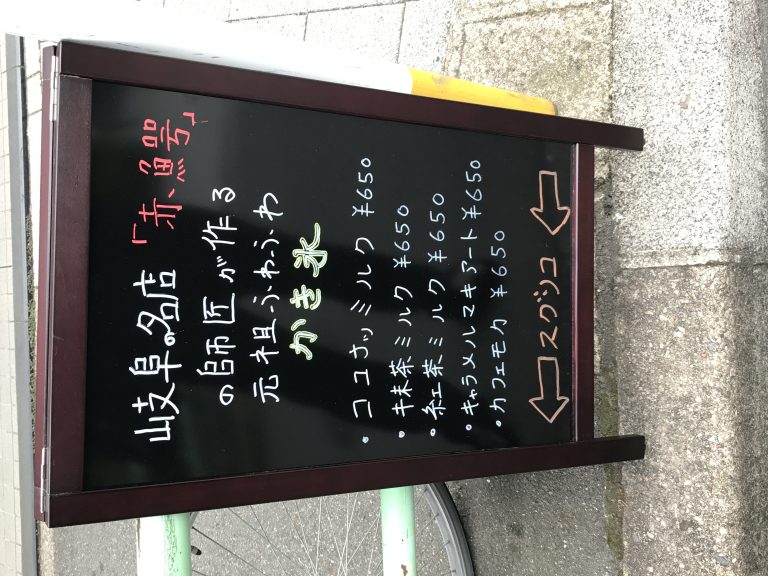 岐阜の名店「赤鰐」
の師匠が作る
元祖ふわふわ
かき氷
・ココナッツミルク ¥650
・抹茶ミルク ¥650
・紅茶ミルク ¥650
・キャラメルマキアート ¥650
・カフェモカ ¥650
スグソコ